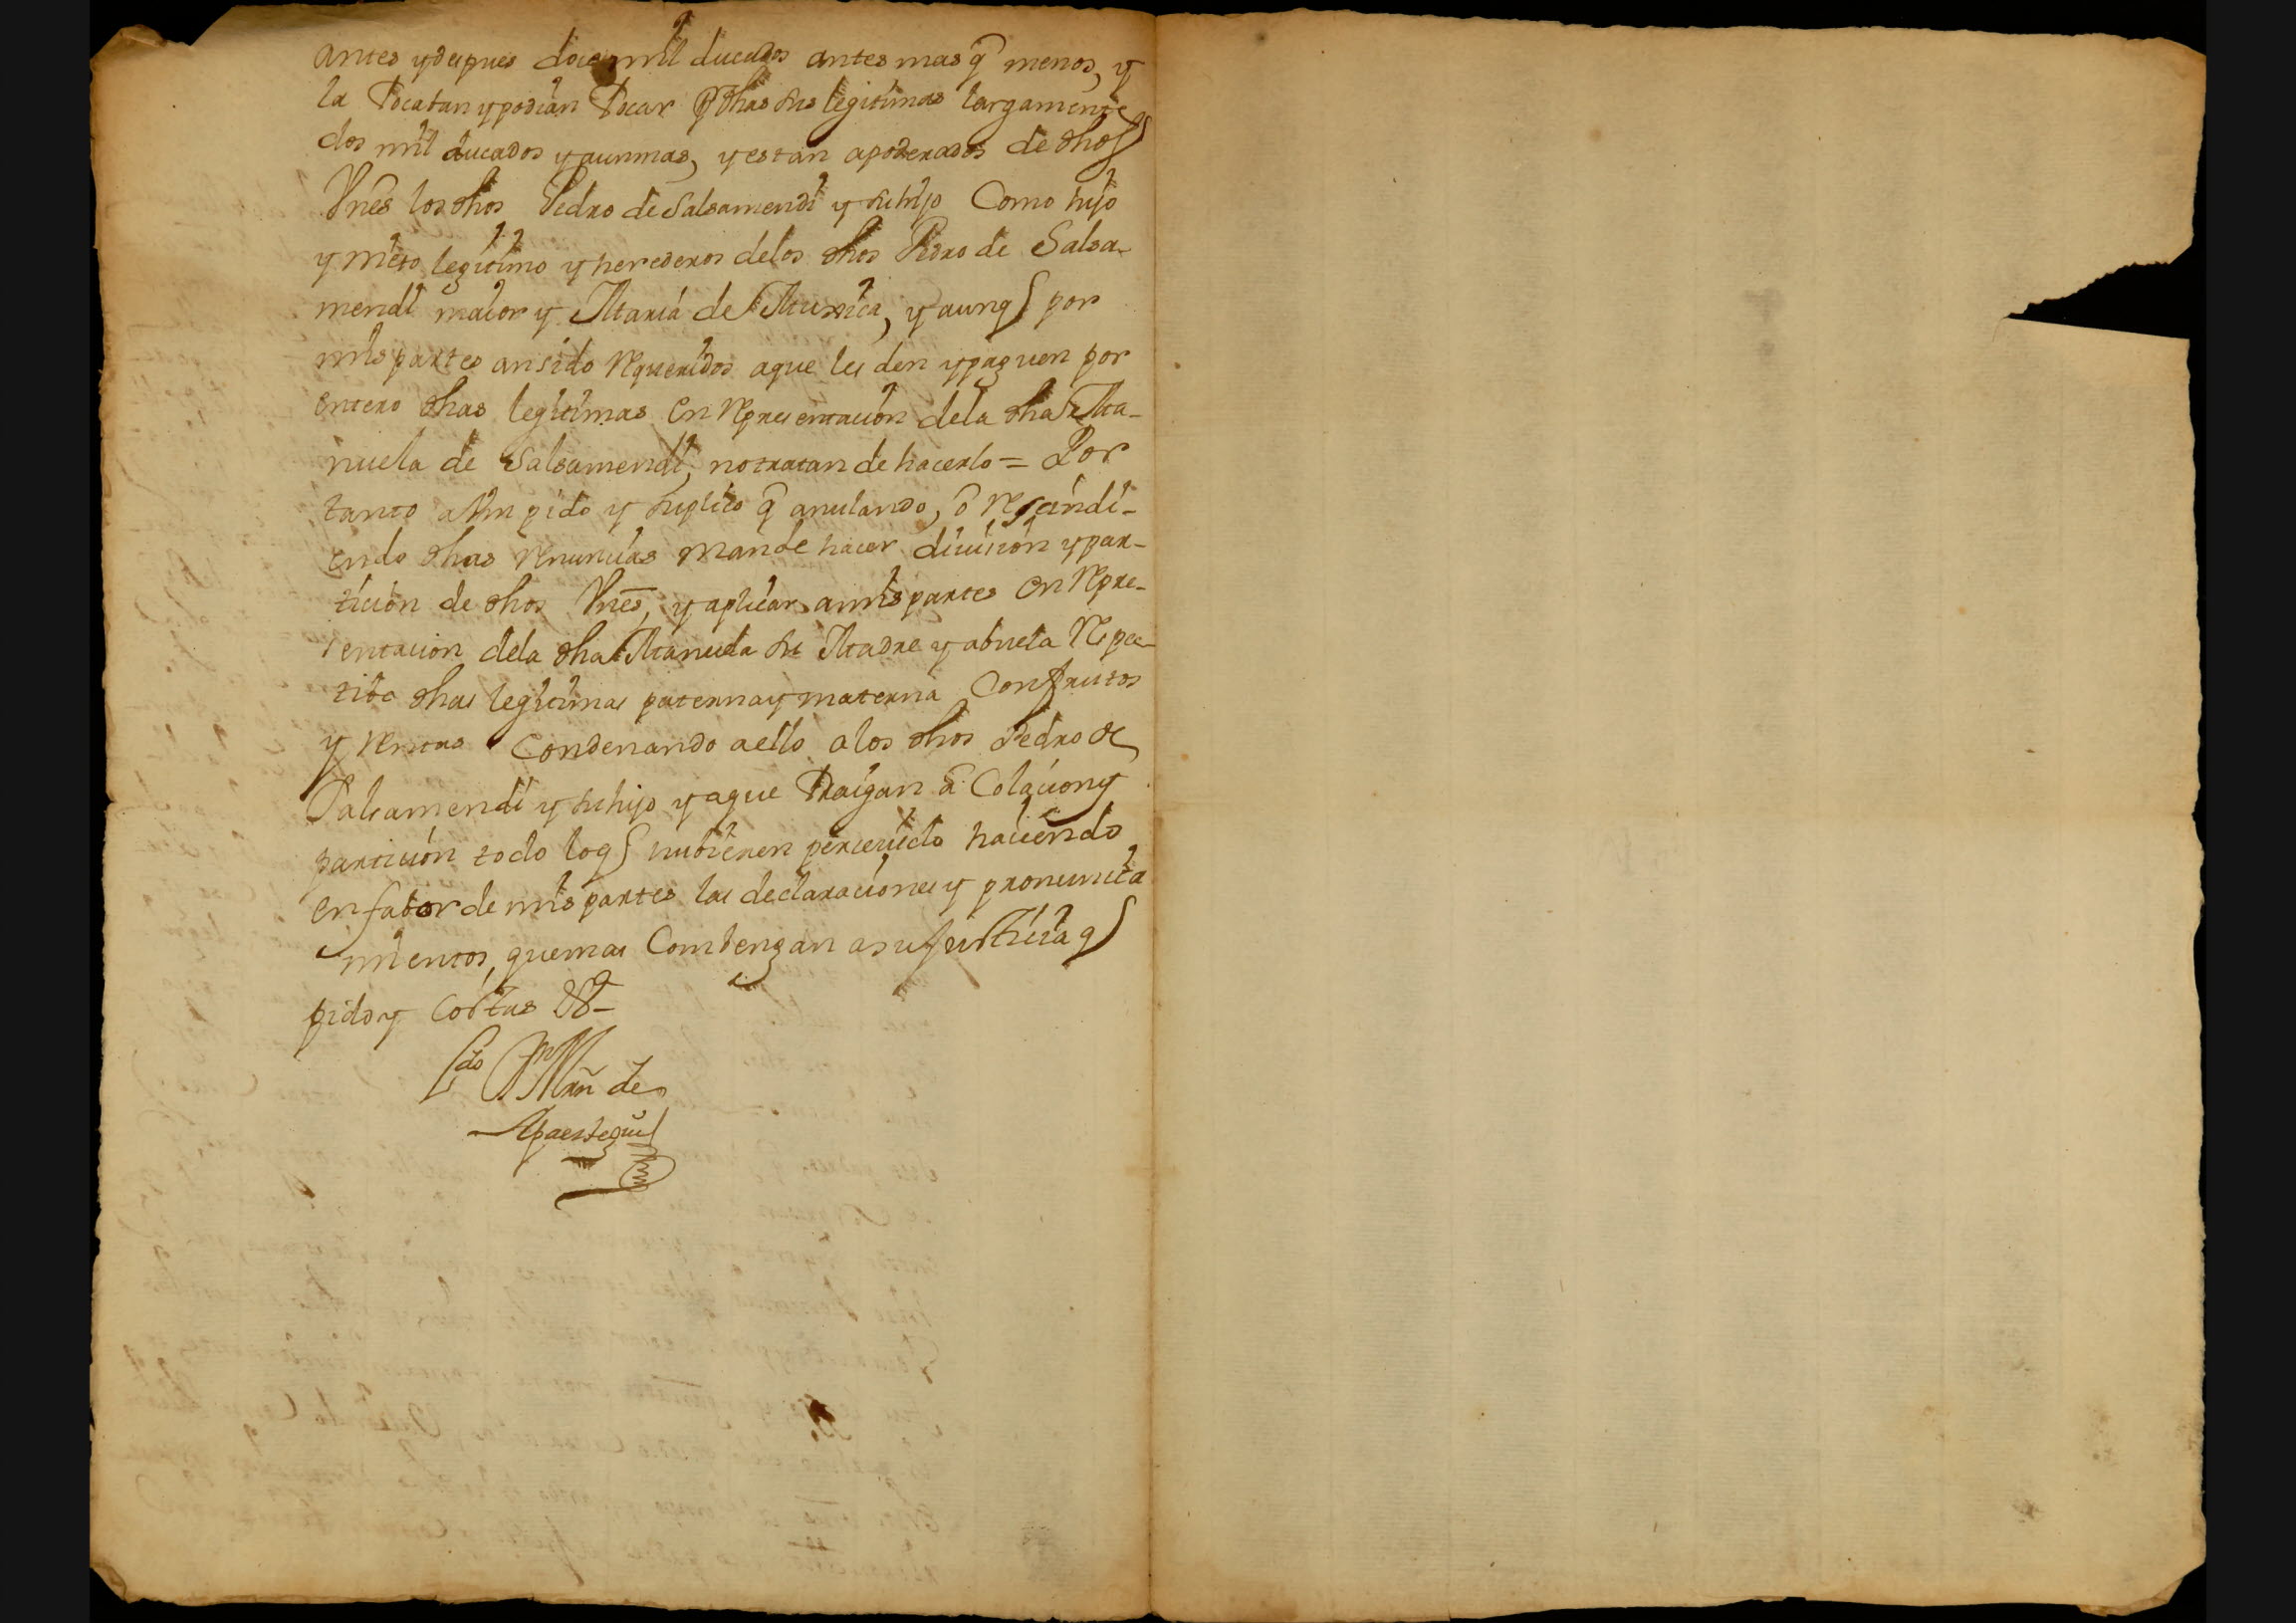 antes y depues doce mil ducados antes mas q̃ menos, y
la Tocaban y podian Tocar por dhas sus legitimas largamente
dos mil ducados y aun mas, y estan apoderados de dhos
Vnes los dhos Pedro de Salsamendi y su hijo Como hijo
y nieto legitimo y herederos delos dhos Pedro de Salsa-
mendi maior y Maria de Munica, y aunq por
mis partes an sido Requeridos a que les den y paguen por
entero dhas legitimas En Representacion dela dha Ma-
nuela de Salsamendi, no tratan de hacerlo = Por
tanto a Vm pido y suplico q̃ anulando, o Rescindi-
endo dhas Renuncias mande hacer diuision y par-
ticion de dhos Vnes, y aplicar a mis partes En Repre-
sentacion dela dha Manuela su Madre y abuela Respec-
tibe dhas legitimas paterna y materna Con frutos
y Rentas Condenando a ello a los dhos Pedro de
Salsamendi y su hijo y a que Traigan a Colacion y
particion todo lo q hubieren perceuido haciendo
en fabor de mis partes las declaraciones y pronuncia
mientos, que mas Combengan a su Justicia q
pido y Costas &a
Ldo Jn Mrn de
Apaestegui